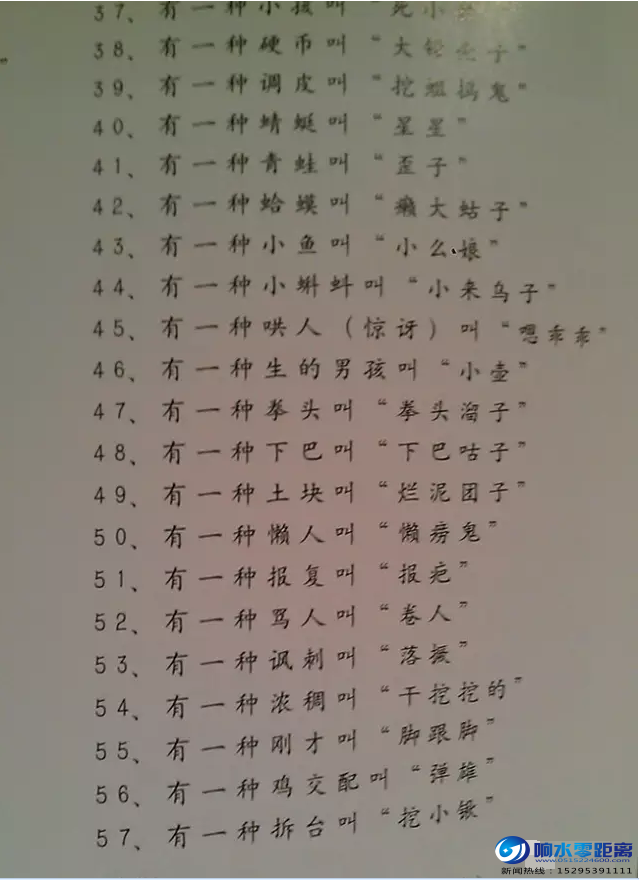 37、有一种小孩叫“死小
38、有一种硬币叫“大轮壳子”
39、有一种调皮叫“挖蛆搗鬼”
40、有一种蜻蜓叫“星星”
41、有一种青蛙叫“歪子”
42、有一种蛤蟆叫“癞大蛄子”
43、有一种小鱼叫“小么娘”
44、有一种小蝌蚪叫“小来乌子”
45、有一种哄人（惊讶）叫“嗯乖乖”
46、有一种生的男孩叫“小壶”
47、有一种拳头叫“拳头溜子”
48、有一种下巴叫“下巴咕子”
49、有一种土块叫“烂泥团子”
50、有一种懒人叫“懒痨鬼”
51、有一种报复叫“报疤”
52、有一种骂人叫“卷人”
53、有一种讽刺叫“落振”
54、有一种浓稠叫“干挖挖的”
55、有一种刚才叫“脚跟脚”
56、有一种鸡交配叫“弹雄”
57、有一种拆台叫“挖小锹”
响水零距离
www.0515224600.com
新闻热线：15295391111